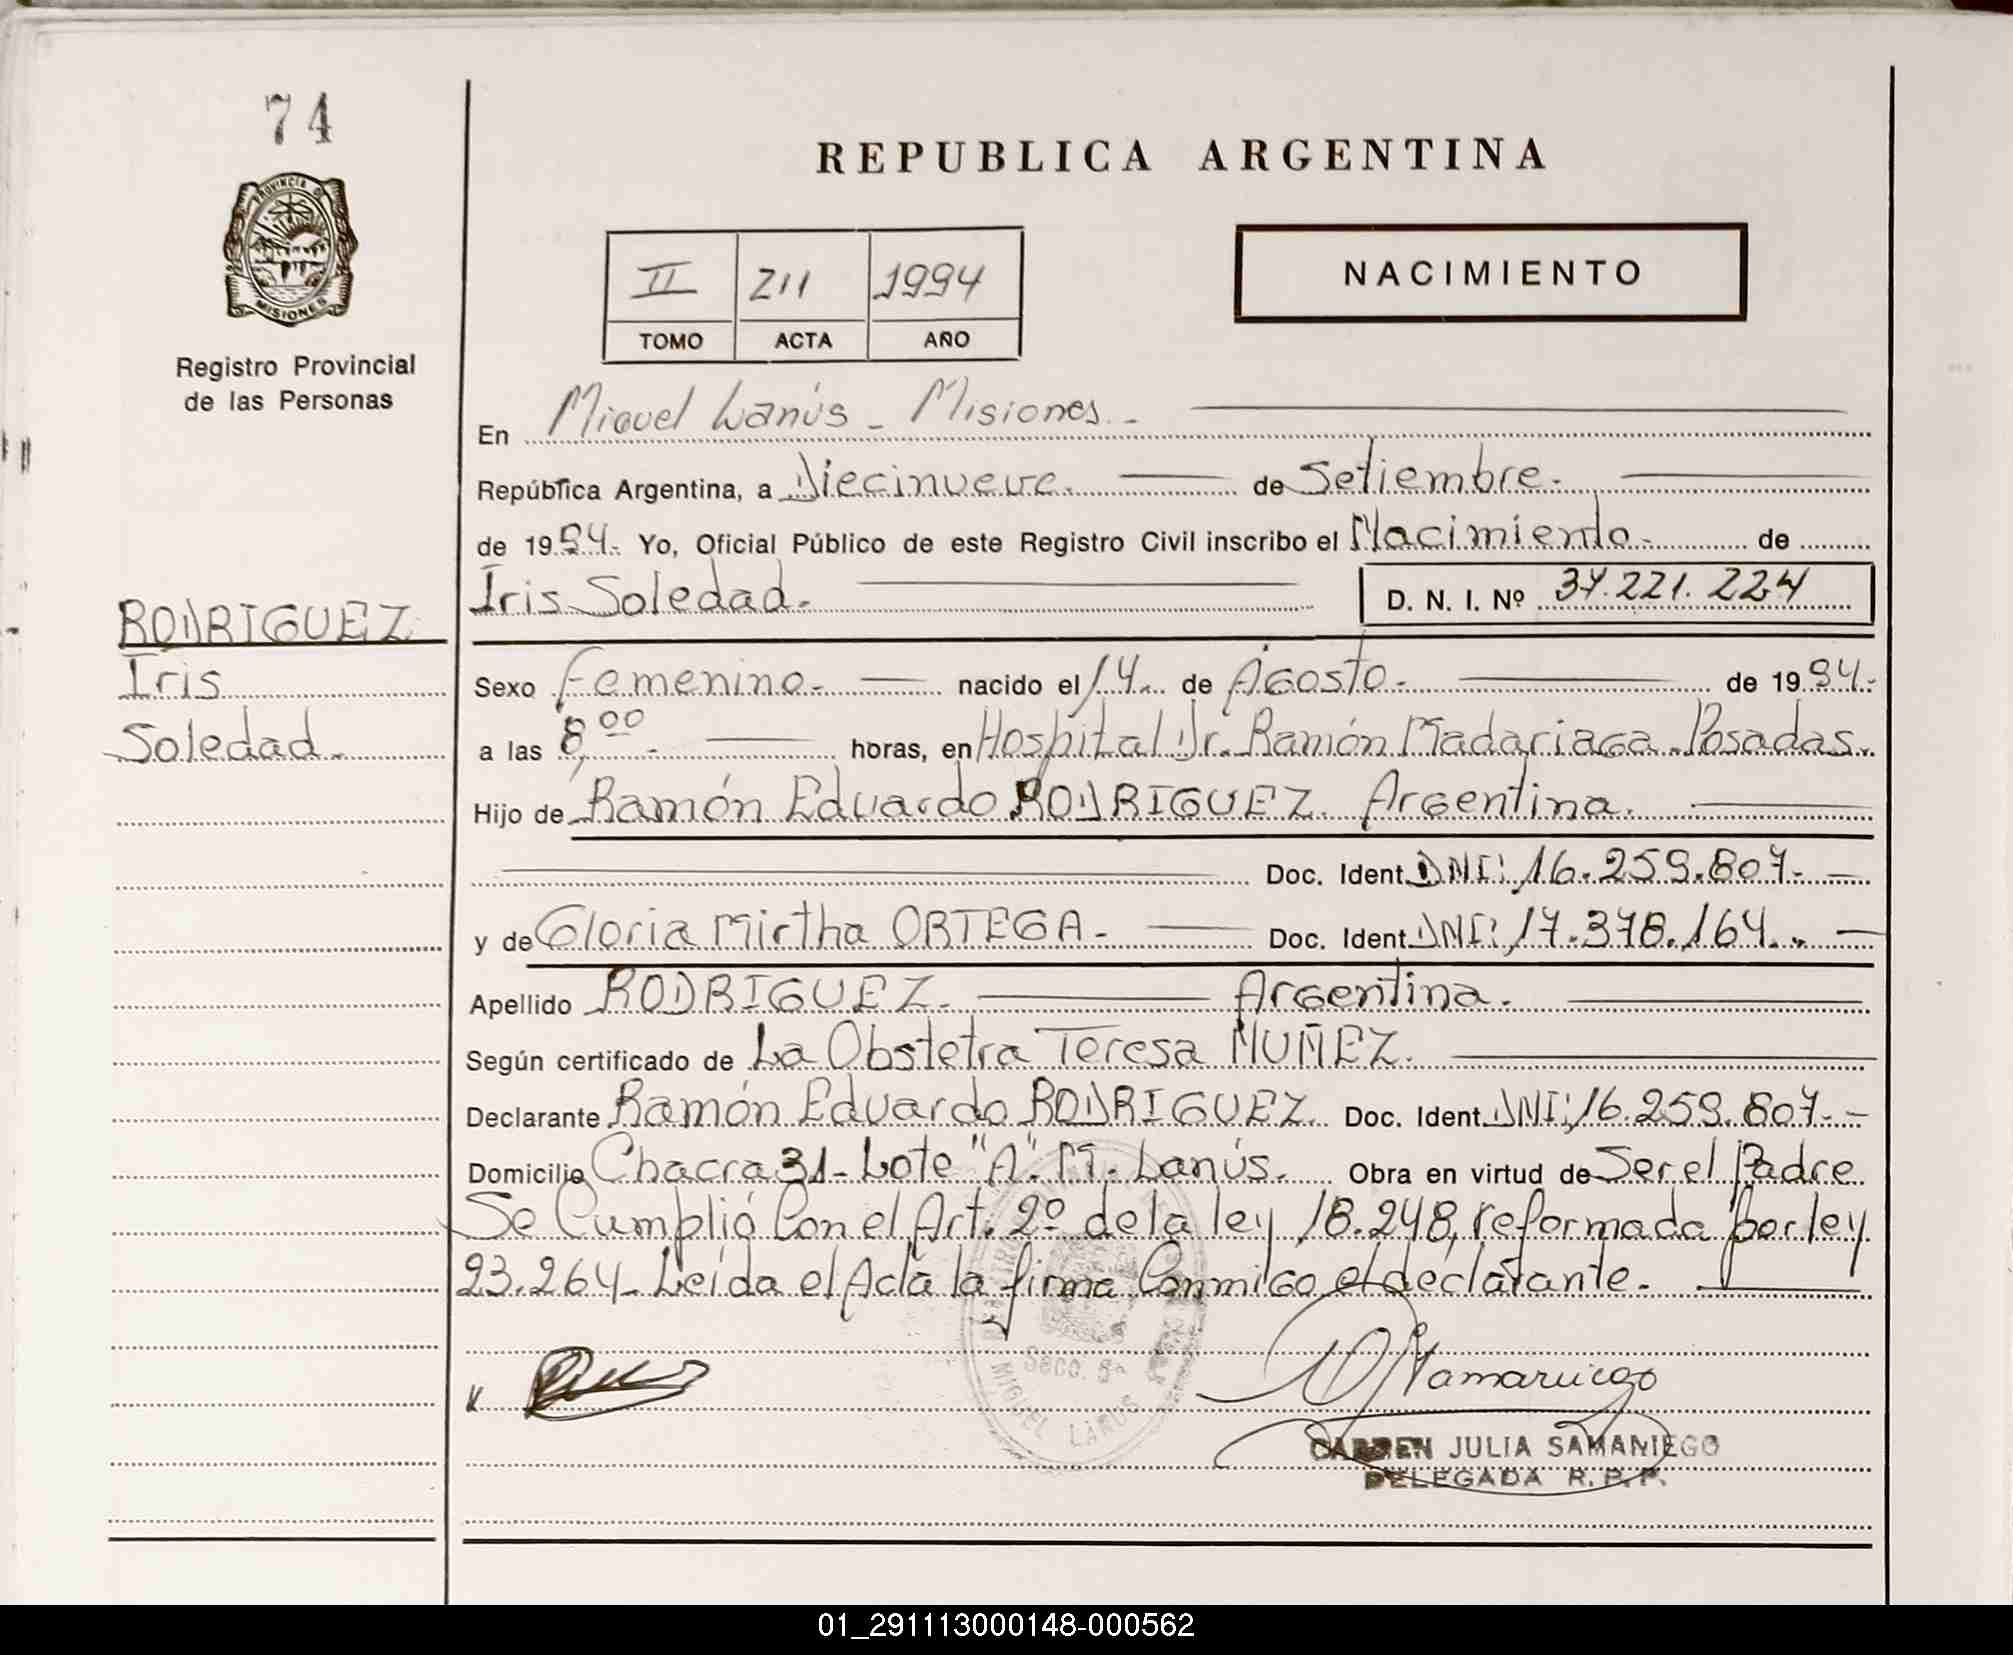 74
REPUBLICA ARGENTINA
PROVINCIA DE
MISIONES
Registro Provincial
de las Personas
II 211 1994
TOMO ACTA AÑO
NACIMIENTO
En Miguel Lanús - Misiones.-
República Argentina, a Diecinueve. de Setiembre.
de 1994.- Yo, Oficial Público de este Registro Civil inscribo el Nacimiento.- de
Iris Soledad.- D. N. I. Nº 37.221.224
RODRIGUEZ
Iris
Soledad.-
Sexo Femenino.- nacido el 14. de Agosto.- de 1994.-
a las 8,00.- horas, en Hospital Dr. Ramón Madariaga - Posadas.
Hijo de Ramón Eduardo RODRIGUEZ. Argentina.
Doc. Ident. DNI: 16.259.807.-
y de Gloria Mirtha ORTEGA.- Doc. Ident. DNI: 17.378.164.-
Apellido RODRIGUEZ.- Argentina.-
Según certificado de La Obstetra Teresa MUÑEZ.
Declarante Ramón Eduardo RODRIGUEZ. Doc. Ident. DNI: 16.259.807.-
Domicilio Chacra 31- Lote "A". M. Lanús. Obra en virtud de Ser el Padre
Se Cumplió Con el Art. 2º de la ley 18.248, reformada por ley
23.264- Leída el Acta la firma Conmigo el declarante.-
Secc. 5a
MIGUEL LANUS
CARMEN JULIA SAMANIEGO
DELEGADA R. P. P.
01_291113000148-000562